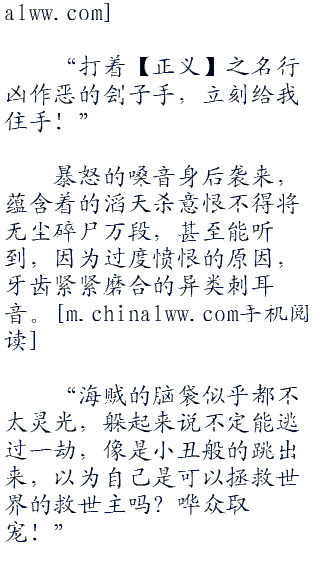 alww.com]
“打着【正义】之名行
凶作恶的刽子手，立刻给我
住手！”
暴怒的嗓音身后袭来，
蕴含着的滔天杀意恨不得将
无尘碎尸万段，甚至能听
到，因为过度愤恨的原因，
牙齿紧紧磨合的异类刺耳
音。[m.chinalww.com手机阅
读]
“海贼的脑袋似乎都不
太灵光，躲起来说不定能逃
过一劫，像是小丑般的跳出
来，以为自己是可以拯救世
界的救世主吗？哗众取
宠！”